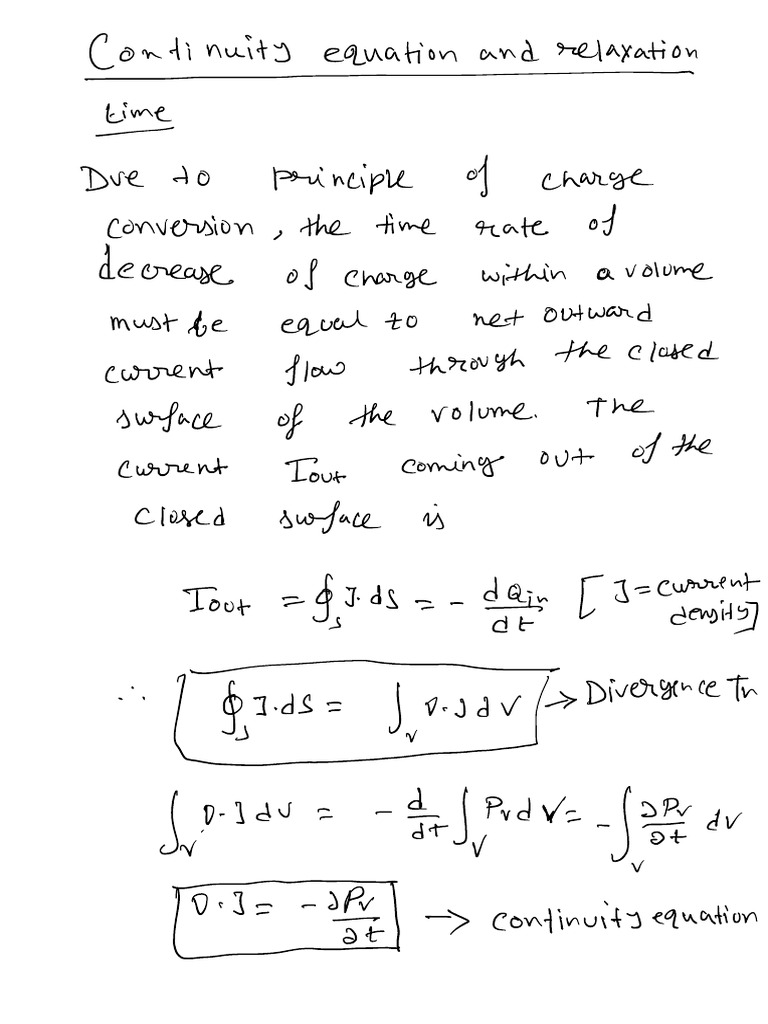 Continuity equation and relaxation
time
Due to principle of charge
conversion, the time rate of
decrease of charge within a volume
must be equal to net outward
current flow through the closed
surface of the volume. The
current Iout coming out of the
closed surface is
Iout = ∮s J·ds = - dQin/dt [J = current density]
∴ ∮s J·ds = ∫v ∇·J dV → Divergence Tn
∫v ∇·J dv = - d/dt ∫v Pv dV = - ∫v ∂Pv/∂t dv
∇·J = - ∂Pv/∂t → continuity equation